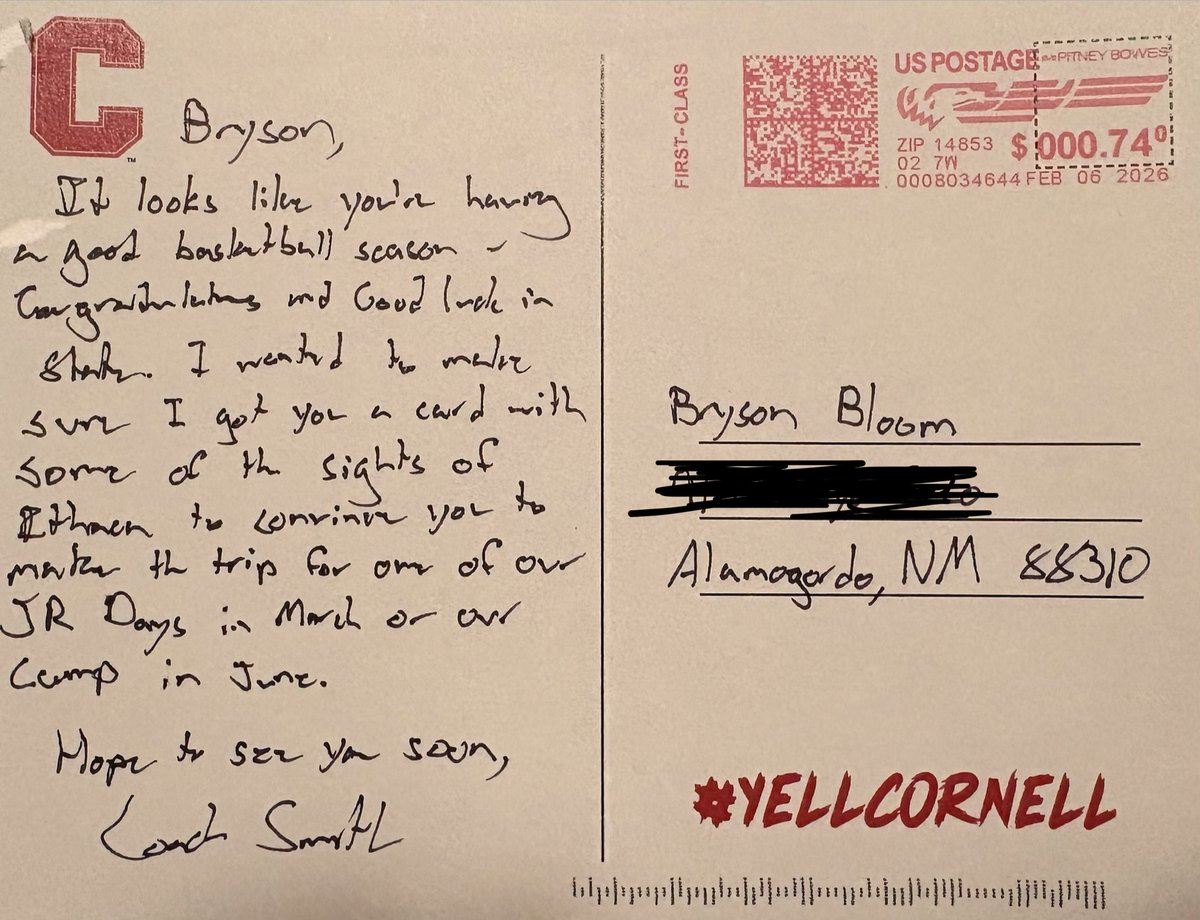 C
TM
Bryson,
It looks like you're having
a good basketball season -
Congratulations and Good luck in
State. I wanted to make
sure I got you a card with
some of the sights of
Ithaca to convince you to
make the trip for one of our
JR Days in March or our
Camp in June.
Hope to see you soon,
Coach Smith
FIRST-CLASS
US POSTAGE PITNEY BOWES
ZIP 14853 $ 000.74⁰
02 7W
0008034644 FEB 06 2026
Bryson Bloom
Alamogordo, NM 88310
#YELLCORNELL